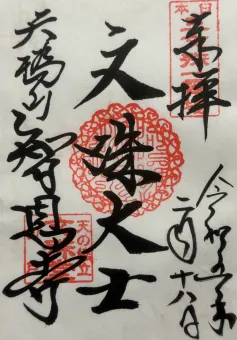 奉拝
令和五年
二月十八日
文殊大士
天橋山
智恩寺